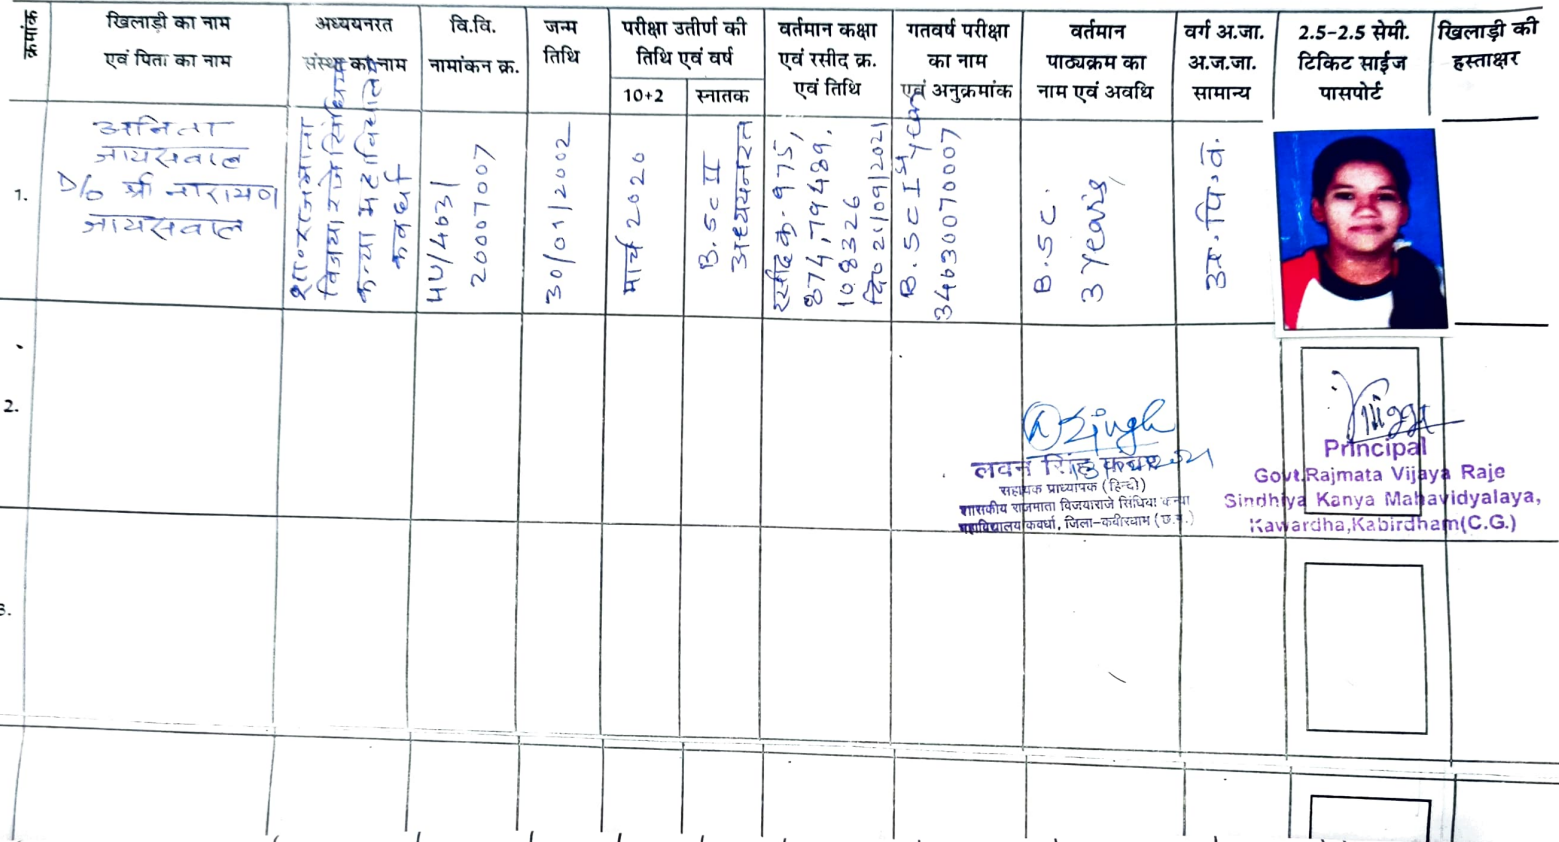 क्रमांक
खिलाड़ी का नाम
एवं पिता का नाम
अध्ययनरत
संस्था का नाम
वि.वि.
नामांकन क्र.
जन्म
तिथि
परीक्षा उतीर्ण की
तिथि एवं वर्ष
10+2
स्नातक
वर्तमान कक्षा
एवं रसीद क्र.
एवं तिथि
गतवर्ष परीक्षा
का नाम
एवं अनुक्रमांक
वर्तमान
पाठ्यक्रम का
नाम एवं अवधि
वर्ग अ.जा.
अ.ज.जा.
सामान्य
2.5-2.5 सेमी.
टिकिट साईज
पासपोर्ट
खिलाड़ी की
हस्ताक्षर
1.
अनिता
जायसवाल
D/o श्री नारायण
जायसवाल
शा० राजमाता
विजयाराजे सिंधिया
कन्या महाविद्यालय
कवर्धा
HU/4631
20007007
30/01/2002
मार्च 2020
B.Sc II
अध्ययनरत
रसीद क्र.-975,
874,79489,
108326
दि० 21/09/2021
B.Sc Ist year
34630070007
B.SC.
3 Years
अ.पि.व.
2.
Singh
लवन सिंह
सहायक प्राध्यापक (हिन्दी)
शासकीय राजमाता विजयाराजे सिंधिया कन्या
महाविद्यालय कवर्धा, जिला-कबीरधाम (छ.ग.)
Principal
Govt.Rajmata Vijaya Raje
Sindhiya Kanya Mahavidyalaya,
Kawardha,Kabirdham(C.G.)
3.